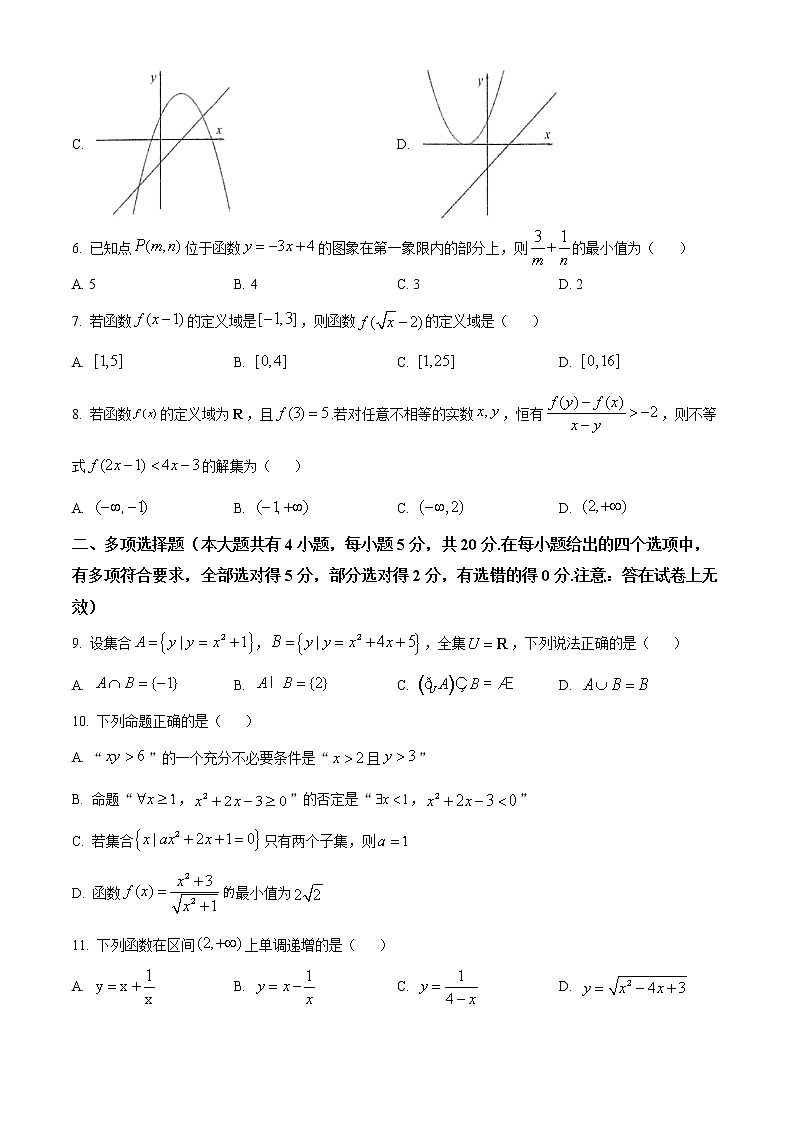 y
x
C.
y
x
D.
6. 已知点 P(m,n) 位于函数 y = −3x + 4 的图象在第一象限内的部分上，则 3/m + 1/n 的最小值为（   ）
A. 5 B. 4 C. 3 D. 2
7. 若函数 f(x−1) 的定义域是 [−1,3]，则函数 f(√x − 2) 的定义域是（   ）
A. [1,5] B. [0,4] C. [1,25] D. [0,16]
8. 若函数 f(x) 的定义域为 R，且 f(3) = 5.若对任意不相等的实数 x, y，恒有 (f(y) − f(x))/(x − y) > −2，则不等
式 f(2x−1) < 4x−3 的解集为（   ）
A. (−∞,−1) B. (−1,+∞) C. (−∞,2) D. (2,+∞)
二、多项选择题（本大题共有 4 小题，每小题 5 分，共 20 分.在每小题给出的四个选项中，
有多项符合要求，全部选对得 5 分，部分选对得 2 分，有选错的得 0 分.注意：答在试卷上无
效）
9. 设集合 A = {y | y = x² + 1}，B = {y | y = x² + 4x + 5}，全集 U = R，下列说法正确的是（   ）
A. A∩B = {−1} B. A| B = {2} C. (ðU A)Ç B = Æ D. A∪B = B
10. 下列命题正确的是（   ）
A. “ xy > 6 ”的一个充分不必要条件是“ x > 2 且 y > 3 ”
B. 命题“ ∀x ≥ 1，x² + 2x − 3 ≥ 0 ”的否定是“ ∃x < 1，x² + 2x − 3 < 0 ”
C. 若集合 {x | ax² + 2x + 1 = 0} 只有两个子集，则 a = 1
D. 函数 f(x) = (x² + 3)/√(x² + 1) 的最小值为 2√2
11. 下列函数在区间 (2,+∞) 上单调递增的是（   ）
A. y = x + 1/x B. y = x − 1/x C. y = 1/(4 − x) D. y = √(x² − 4x + 3)